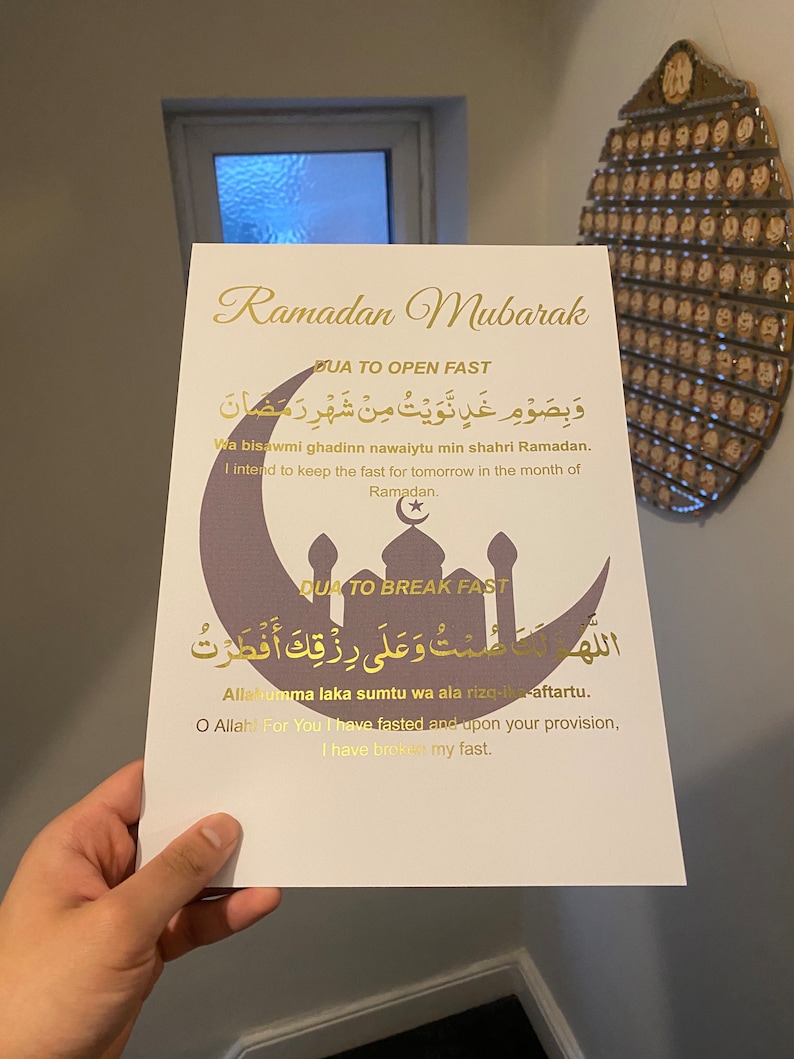 Ramadan Mubarak
DUA TO OPEN FAST
وَبِصَوْمِ غَدٍ نَّوَيْتُ مِنْ شَهْرِ رَمَضَانَ
Wa bisawmi ghadinn nawaiytu min shahri Ramadan.
I intend to keep the fast for tomorrow in the month of
Ramadan.
DUA TO BREAK FAST
اللَّهُمَّ لَكَ صُمْتُ وَعَلَى رِزْقِكَ أَفْطَرْتُ
Allahumma laka sumtu wa ala rizq-ika-aftartu.
O Allah! For You I have fasted and upon your provision,
I have broken my fast.